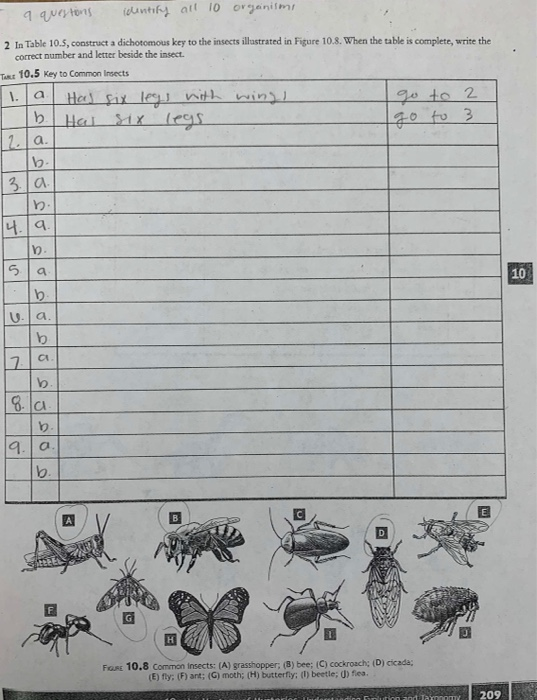 9 questions identify all 10 organisms
2 In Table 10.5, construct a dichotomous key to the insects illustrated in Figure 10.8. When the table is complete, write the
correct number and letter beside the insect.
TABLE 10.5 Key to Common Insects
1. a Has six legs with wings go to 2
b Has six legs go to 3
2. a.
b.
3. a.
b.
4. a.
b.
5 a
b.
6. a.
b
7. a.
b.
8. a
b.
9. a.
b.
10
A B C D E
F G H I J
FIGURE 10.8 Common insects: (A) grasshopper; (B) bee; (C) cockroach; (D) cicada;
(E) fly; (F) ant; (G) moth; (H) butterfly; (I) beetle; (J) flea.
Evolution and Taxonomy 209